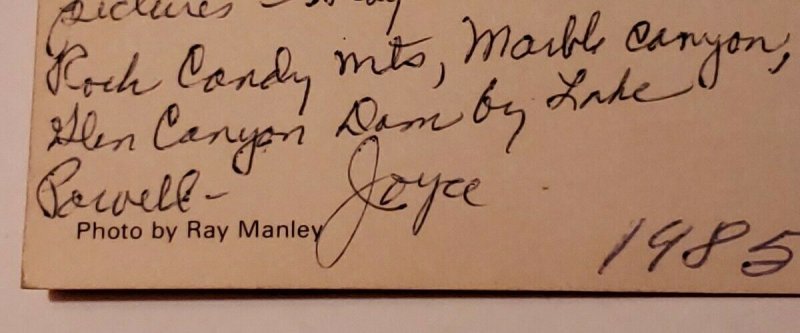 pictures -
Rock Candy Mts, Marble Canyon,
Glen Canyon Dam by Lake
Powell- Joyce
Photo by Ray Manley
1985